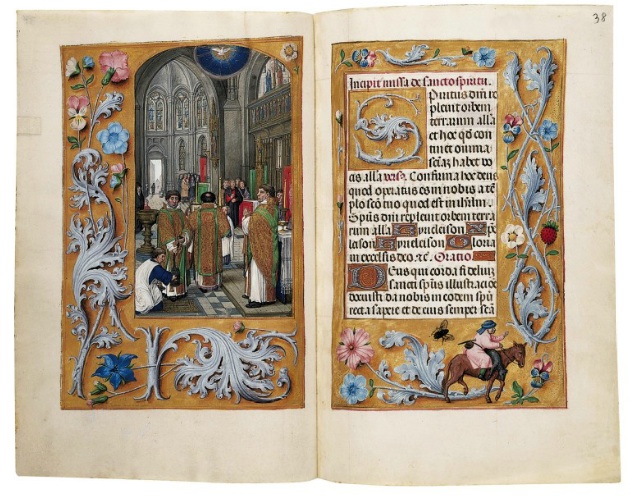 38
Incipit missa de sancto spiritu.
Piritus dñi re
plevit orbem
terrarum alla
et hoc qd con
tinet omnia
sciaȝ habet vo
cis alla versꝰ. Confirma hoc deus
quod operatus es in nobis a tẽ
plo scõ tuo quod est in ihrlm.
Spũs dñi replevit orbem terra
rum alla Kyrieleison. Xp̃e
leison Kyrieleison Gloria
in excelsis deo. et c. Oratio
Deus qui corda fideliũ
sancti spũs illustracioe
docuisti da nobis in eodem spũ
recta sapere et de eius semper scã